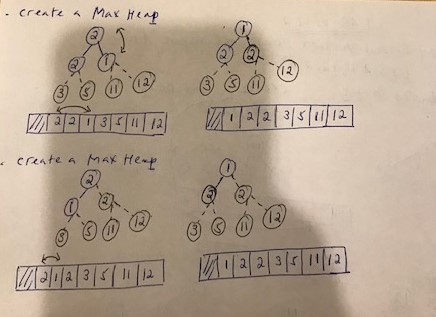 . create a Max Heap
2 1
2 1 2 2
3 5 11 12 3 5 11 12
2 2 1 3 5 11 12 1 2 2 3 5 11 12
. create a Max Heap
2 1
1 2 2 2
3 5 11 12 3 5 11 12
2 1 2 3 5 11 12 1 2 2 3 5 11 12